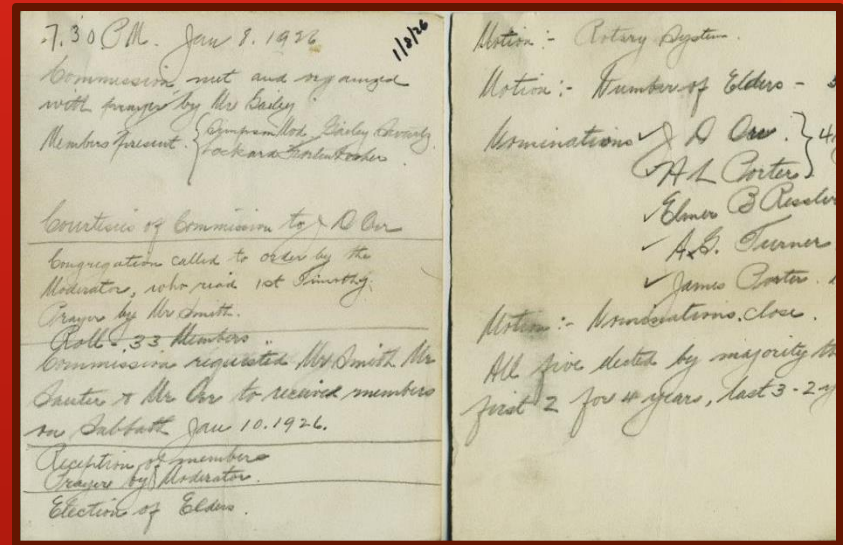 7.30 P.M. Jan 8. 1926
1/8/26
Commission met and organized
with prayer by Mr Bailey
Members present. { Simpson Mod. Bailey
Lockard
Courtesies of Commission to J D Orr
Congregation called to order by the
Moderator, who read 1st Timothy.
Prayer by Mr Smith.
Roll 33 Members
Commission requested Mr Smith Mr
Sauter & Mr Orr to received members
on Sabbath Jan 10. 1926.
Reception of members
Prayer by Moderator.
Election of Elders.
Motion:- Rotary System.
Motion:- Number of Elders -
Nominations ✓ J D Orr. } 4
✓ A L Porter
✓ Elmer B Ressler
✓ A.G. Turner
✓ James Porter.
Motion:- Nominations close.
All five elected by majority
first 2 for 4 years, last 3 - 2